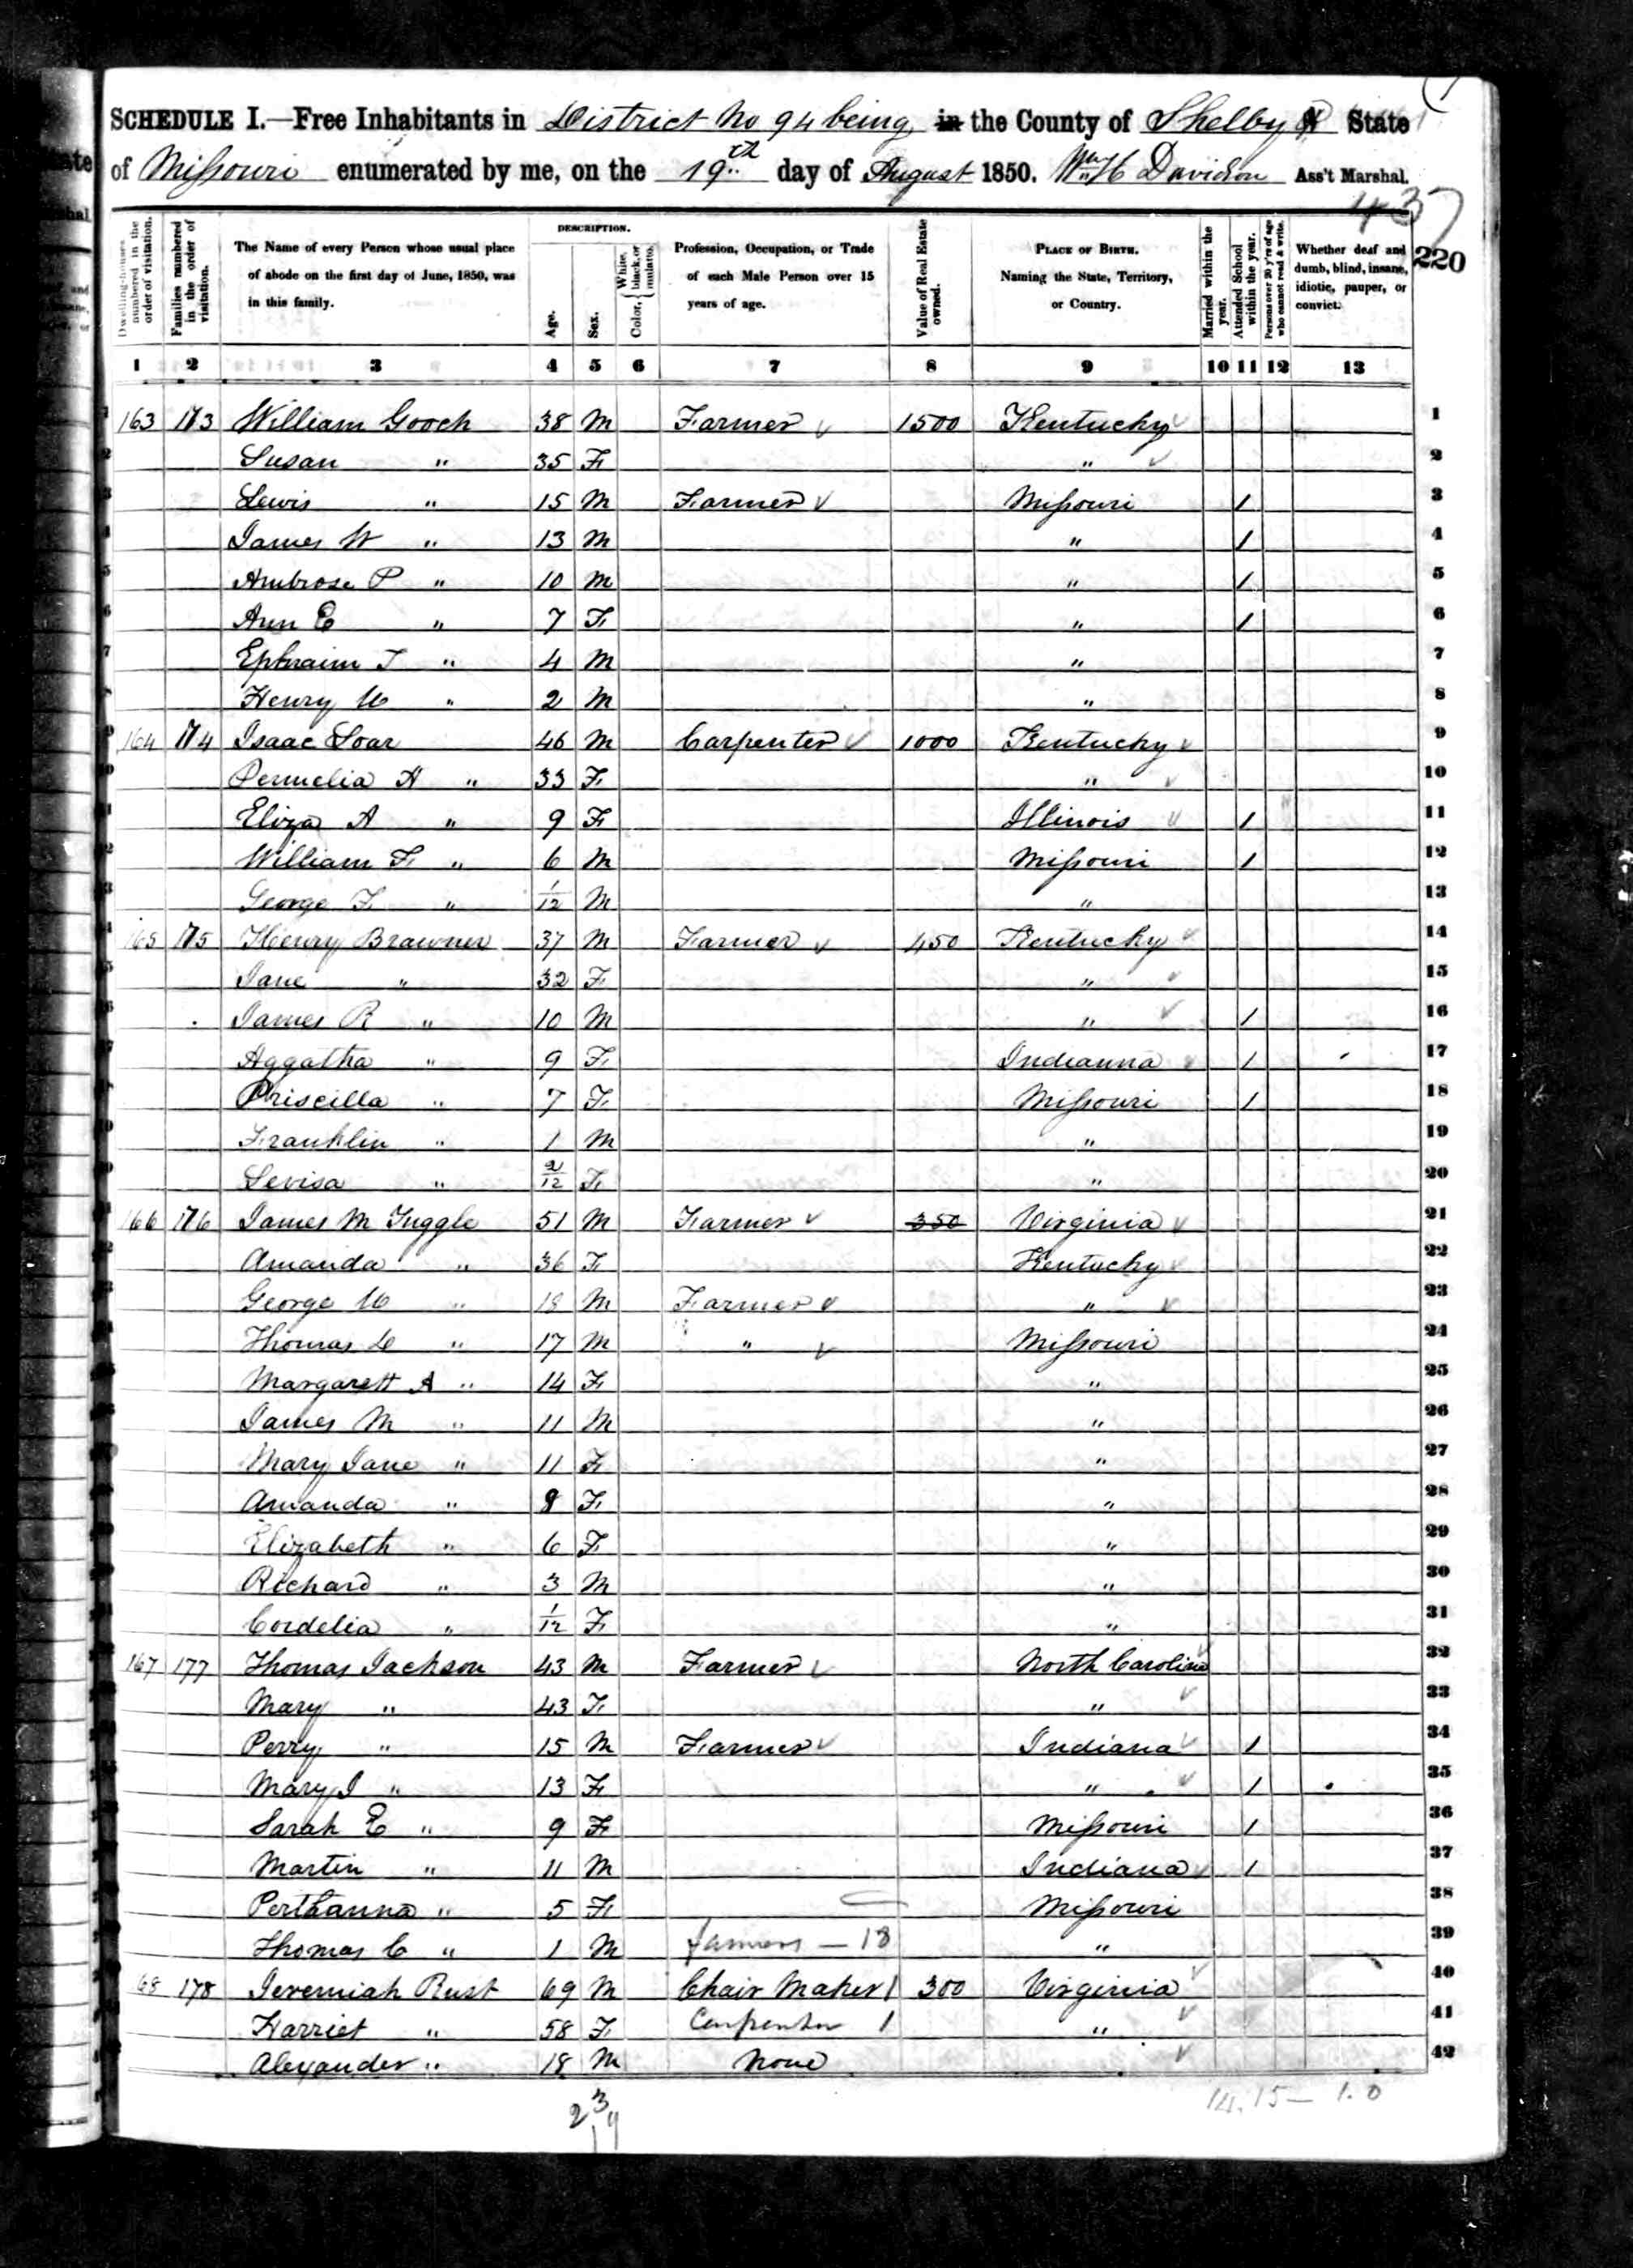 SCHEDULE I.—Free Inhabitants in District No 94 being in the County of Shelby State
of Missouri enumerated by me, on the 19th day of August 1850. Wm H Davidson Ass't Marshal.
437
220
DESCRIPTION.
Dwelling-houses numbered in the order of visitation.
Families numbered in the order of visitation.
The Name of every Person whose usual place of abode on the first day of June, 1850, was in this family.
Age.
Sex.
Color, { White, black, or mulatto.
Profession, Occupation, or Trade of each Male Person over 15 years of age.
Value of Real Estate owned.
PLACE OF BIRTH. Naming the State, Territory, or Country.
Married within the year.
Attended School within the year.
Persons over 20 y'rs of age who cannot read & write.
Whether deaf and dumb, blind, insane, idiotic, pauper, or convict.
1 2 3 4 5 6 7 8 9 10 11 12 13
163 173 William Gooch 38 M Farmer 1500 Kentucky 1
Susan " 35 F " 2
Lewis " 15 M Farmer Missouri 1 3
James W " 13 M " 1 4
Ambrose P " 10 M " 1 5
Ann E " 7 F " 1 6
Ephraim T " 4 M " 7
Henry " 2 M " 8
164 174 Isaac Soar 46 M Carpenter 1000 Kentucky 9
Permelia A " 33 F " 10
Eliza A " 9 F Illinois 1 11
William F " 6 M Missouri 1 12
George F " 1/12 M " 13
165 175 Henry Brawner 37 M Farmer 450 Kentucky 14
Jane " 32 F " 15
James R " 10 M " 1 16
Aggatha " 9 F Indianna 1 17
Priscilla " 7 F Missouri 1 18
Franklin " 1 M " 19
Levisa " 2/12 F " 20
166 176 James M Tuggle 51 M Farmer 350 Virginia 21
Amanda " 36 F Kentucky 22
George " 18 M Farmer " 23
Thomas " 17 M " Missouri 24
Margarett A " 14 F " 25
James M " 11 M " 26
Mary Jane " 11 F " 27
Amanda " 8 F " 28
Elizabeth " 6 F " 29
Richard " 3 M " 30
Cordelia " 1/12 F " 31
167 177 Thomas Jackson 43 M Farmer North Carolina 32
Mary " 43 F " 33
Perry " 15 M Farmer Indiana 1 34
Mary J " 13 F " 1 35
Sarah E " 9 F Missouri 1 36
Martin " 11 M Indiana 1 37
Perthanna " 5 F Missouri 38
Thomas C " 1 M farmers — 18 " 39
68 178 Jeremiah Rust 69 M Chair Maker 1 300 Virginia 40
Harriet " 58 F Carpenter 1 " 41
Alexander " 18 M None 42
14.15 — 1.0